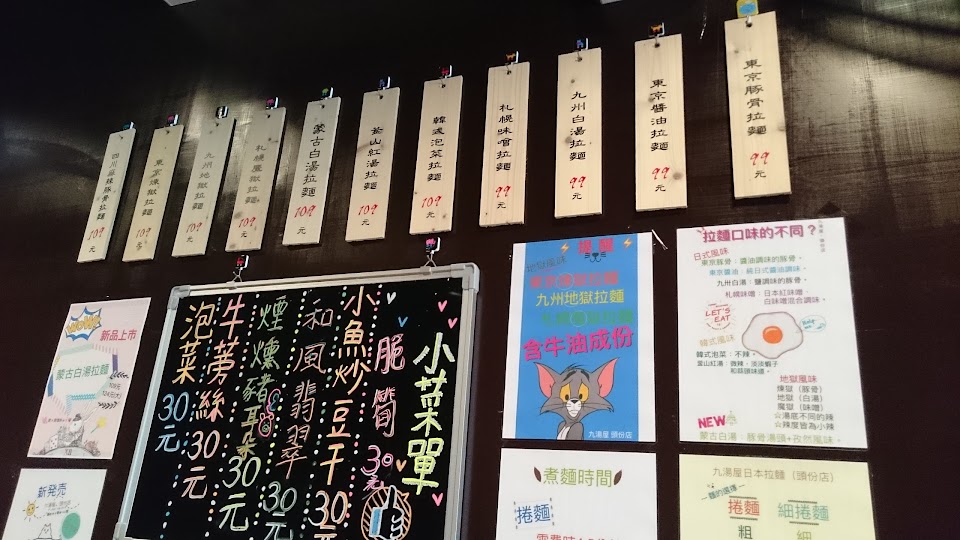 東京豚骨拉麵 99元
東京醬油拉麵 99元
九州白湯拉麵 99元
札幌味噌拉麵 99元
韓式泡菜拉麵 109元
釜山紅湯拉麵 109元
蒙古白湯拉麵 109元
札幌魔獄拉麵 109元
九州地獄拉麵 109元
東京煉獄拉麵 109元
四川麻辣豚骨拉麵 109元
小菜單
脆筍 30元
小魚炒豆干 30元
和風翡翠 30元
煙燻豬耳朵 30元
牛蒡絲 30元
泡菜 30元
新品上市
蒙古白湯拉麵
新発売
提醒
地獄風味
東京煉獄拉麵
九州地獄拉麵
札幌魔獄拉麵
含牛油成份
九湯屋 頭份店
拉麵口味的不同?
日式風味
東京豚骨:醬油調味的豚骨。
東京醬油:純日式醬油調味。
九州白湯:鹽調味的豚骨。
札幌味噌:日本紅味噌、
白味噌混合調味。
LET'S EAT
韓式風味
韓式泡菜:不辣。
釜山紅湯:微辣、淡淡蝦子
和蒜頭味道。
地獄風味
煉獄(豚骨)
地獄(白湯)
魔獄(味噌)
☆湯底不同的辣
☆辣度皆為小辣
NEW
蒙古白湯:豚骨湯頭+孜然風味。
煮麵時間
捲麵
九湯屋日本拉麵(頭份店)
捲麵 細捲麵
粗 細